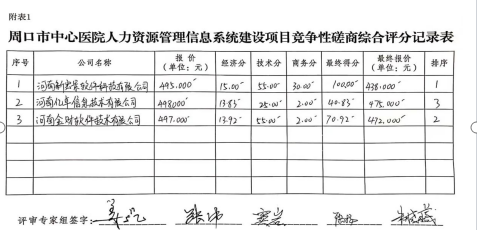 附表1
周口市中心医院人力资源管理信息系统建设项目竞争性磋商综合评分记录表
序号 公司名称 报价（单位：元） 经济分 技术分 商务分 最终得分 最终报价（单位：元） 排序
1 河南新宏景软件科技有限公司 495.000 15.00 55.00 30.00 100.00 438.000 1
2 河南亿卓信息技术有限公司 498.000 13.83 25.00 2.00 40.83 475.000 3
3 河南金财软件技术有限公司 497.000 13.92 55.00 2.00 70.92 472.000 2
评审专家组签字：